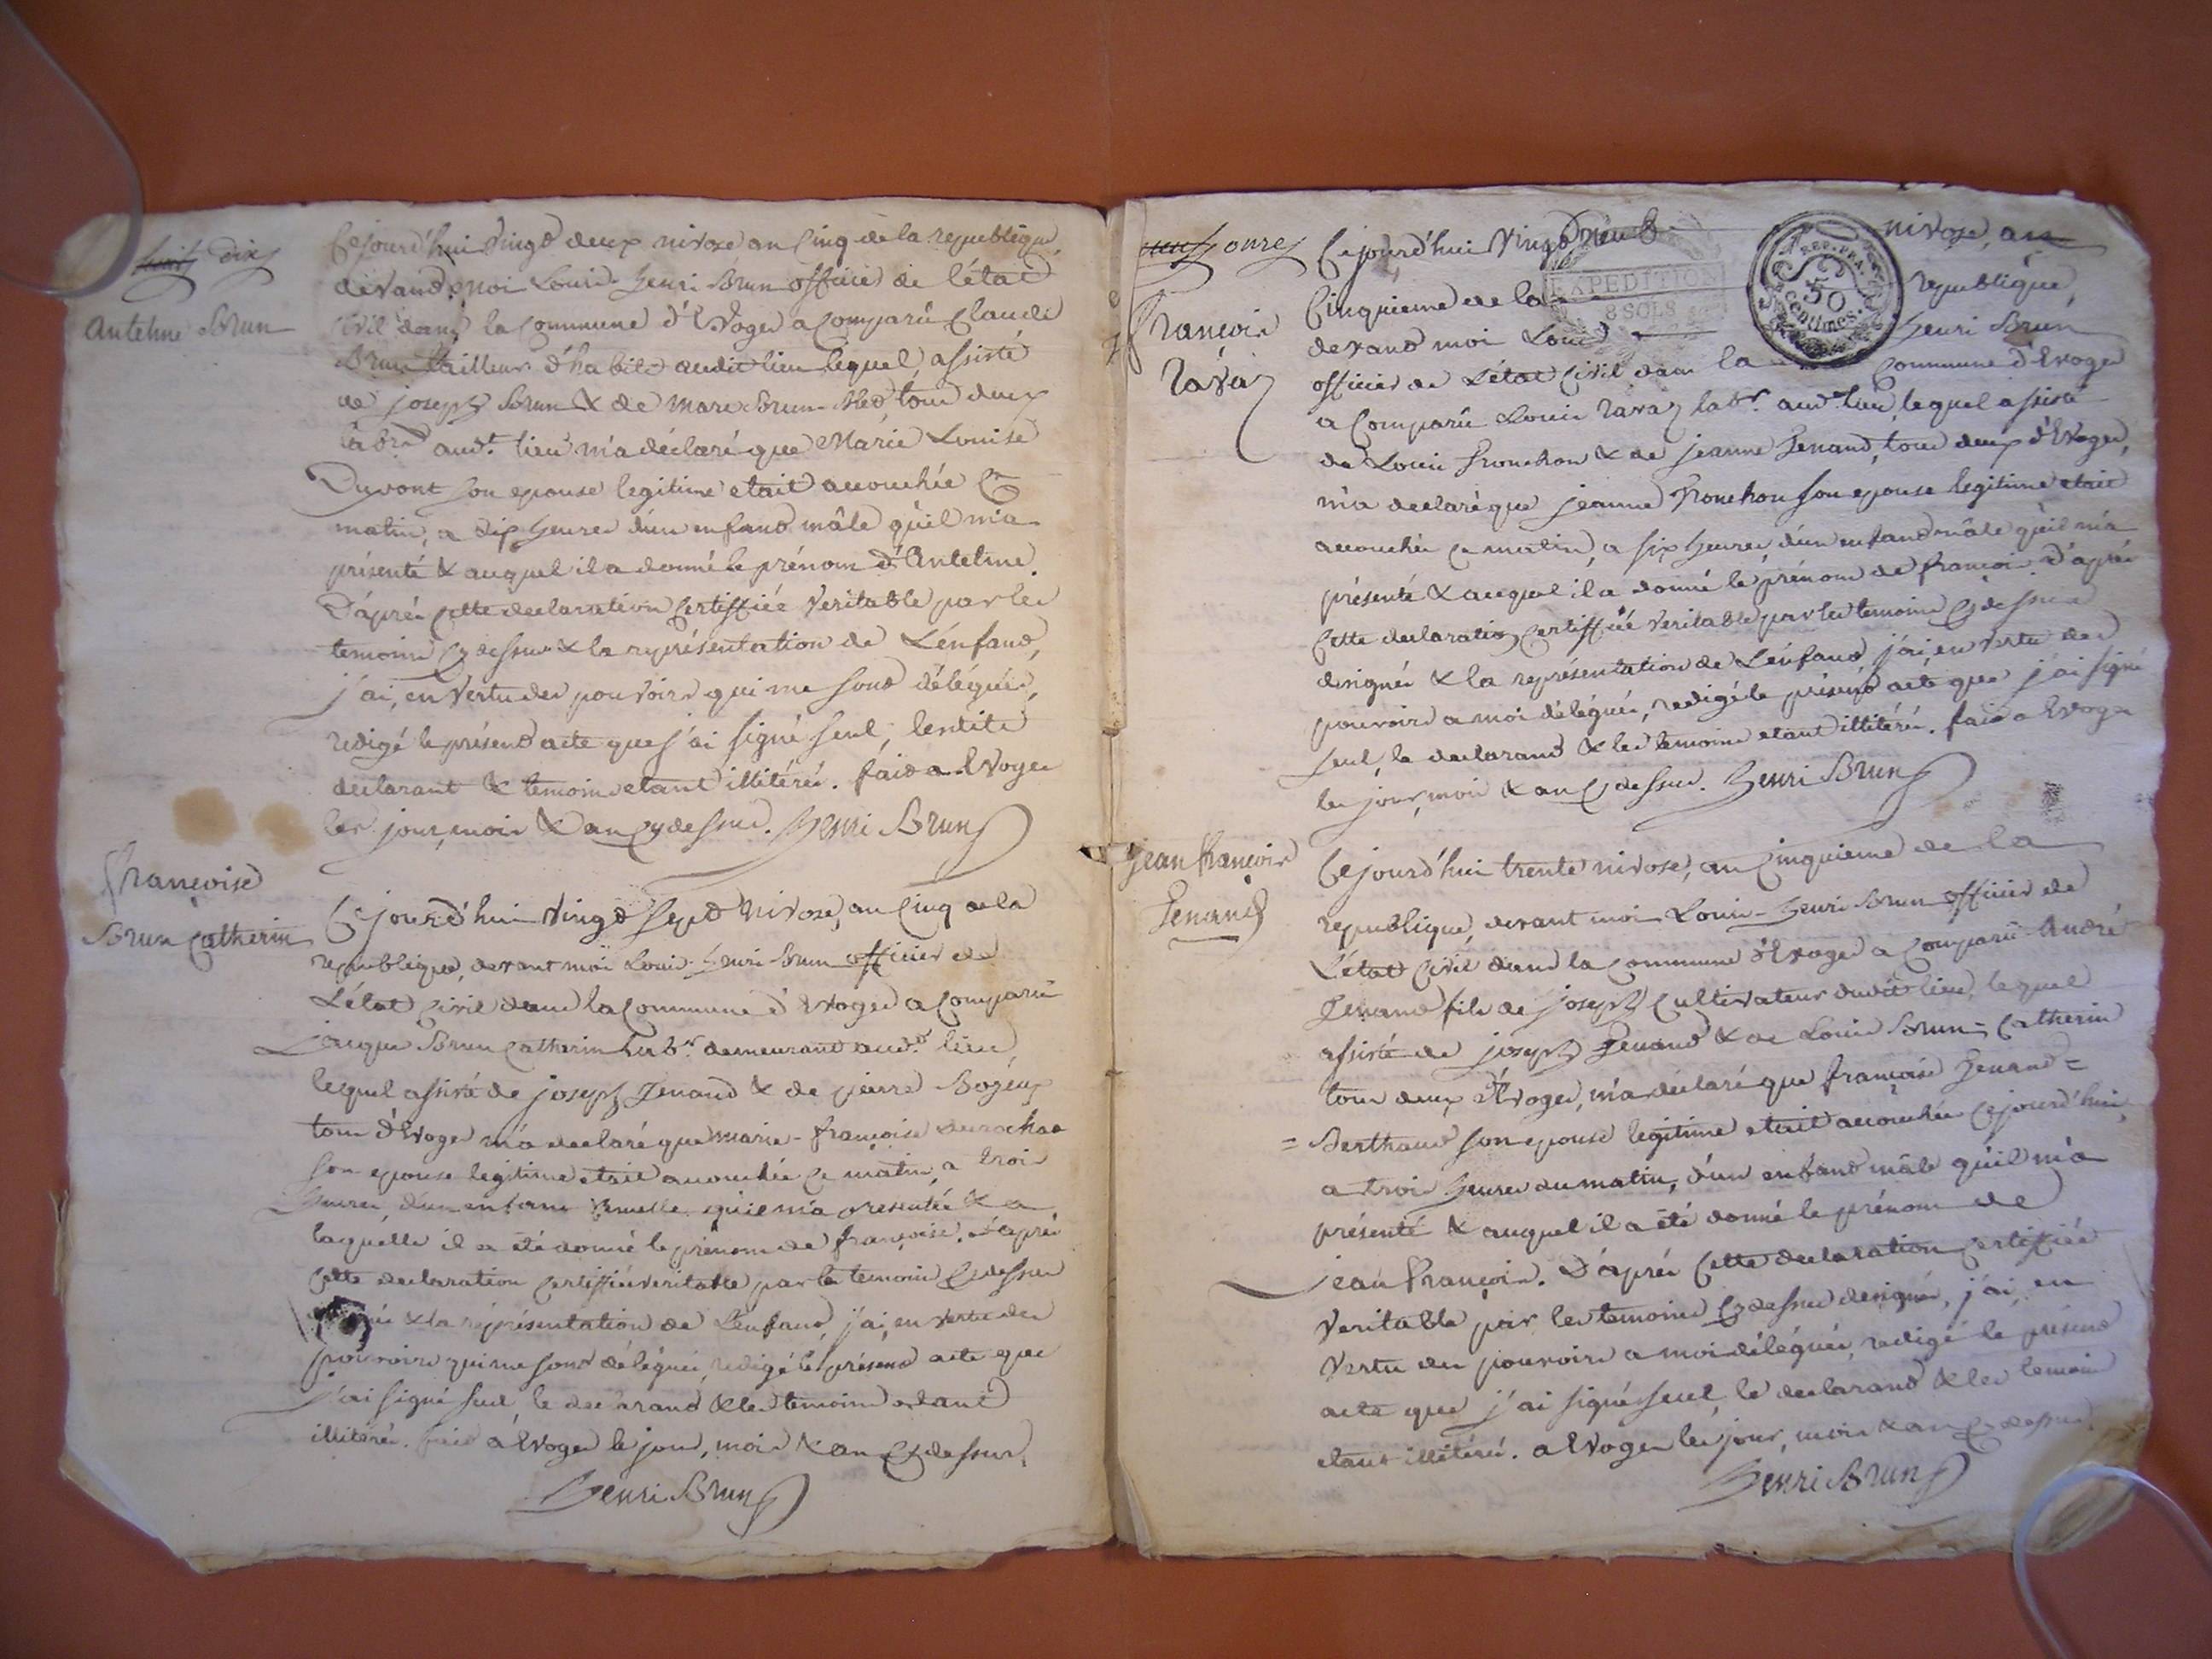 huit dix
Antelme Brun
Cejourd'hui vingt deux nivose an cinq de la republique,
devand moi Louis-Henri Brun officier de l'état
civil dans la commune d'Evoges a comparû Claude
Brun tailleur d'habits audit lieu lequel, assisté
de joseph Brun & de marc Brun- tous deux
labrs. audt. lieu m'a déclaré que Marie Louise
Dupont son epouse legitime etait accouchée ce
matin, a dix heures d'un enfand mâle qu'il m'a
présenté & auquel il a donné le prénom d'Antelme.
D'après cette declaration certiffiée veritable par les
temoins cy dessus & la représentation de L'énfand,
j'ai, en vertu des pouvoirs qui me sond délégués,
redigé le présend acte que j'ai signé seul, lesdits
declarant & temoins etant illitérés. faid a Evoges
les jour, mois & an cy dessus. Henri Brun
françoise
Brun Catherin
Cejourd'hui vingt sept nivose, an cinq de la
republique, devant moi Louis-Henri Brun officier de
L'état civil dans la commune d'Evoges a comparû
jacque Brun Catherin labr. demeurand audt. lieu,
lequel assisté de joseph Jenand & de pierre Bogeux
tous d'Evoges m'a declaré que marie-françoise durochat
son epouse legitime etait accouchée ce matin, a trois
heures, d'un enfant femelle qu'il m'a presentée & a
laquelle il a été donné le prénom de françoise. D'après
cette declaration certiffiée veritable par les temoins cy dessus
& la représentation de L'enfand, j'ai, en vertu des
pouvoirs qui me sond délégués, redigé le présend acte que
j'ai signé seul, le declarand & les temoins etant
illitérés. faid a Evoges le jour, mois & an cy dessus.
Henri Brun
onze
françois
ravaz
Cejourd'hui vingt neuf nivose, an
EXPEDITION
8 SOLS
REP. FRA.
50
Centimes
cinquieme de la republique,
devand moi Louis Henri Brun
officier de L'état civil dans la commune d'Evoges
a comparû Louis ravaz labr. audt. lieu, lequel assisté
de Louis fronchon & de jeanne Jenand, tous deux d'Evoges,
m'a declaré que jeanne fronchon son epouse legitime etait
accouchée ce matin, a six heures, d'un enfand mâle qu'il m'a
présenté & auquel il a donné le prénom de françois. D'après
cette declaration certiffiée veritable par les temoins cy dessus
designés & la représentation de L'énfand, j'ai, en vertu des
pouvoirs a moi délégués, redigé le présend acte que j'ai signé
seul, le declarand & les temoins etant illitérés. faid a Evoges
les jour, mois & an cy dessus. Henri Brun
jean françois
Jenand
Cejourd'hui trente nivose, an cinquieme de la
republique, devant moi Louis-Henri Brun officier de
L'état civil dans la commune d'Evoges a comparû André
Jenand fils de joseph cultivateur dudit lieu, lequel
assisté de joseph Jenand & de Louis Brun-Catherin
tous deux d'Evoges, m'a déclaré que françoise Jenand=
=Berthaud son epouse legitime etait accouchée cejourd'hui,
a trois heures du matin, d'un enfand mâle qu'il m'a
présenté & auquel il a été donné le prénom de
jean françois. D'après cette declaration certiffiée
veritable par les temoins cy dessus designés, j'ai, en
vertu des pouvoirs a moi délégués, redigé le présend
acte que j'ai signé seul, le declarand & les temoins
etant illitérés. a Evoges les jour, mois & an cy dessus.
Henri Brun